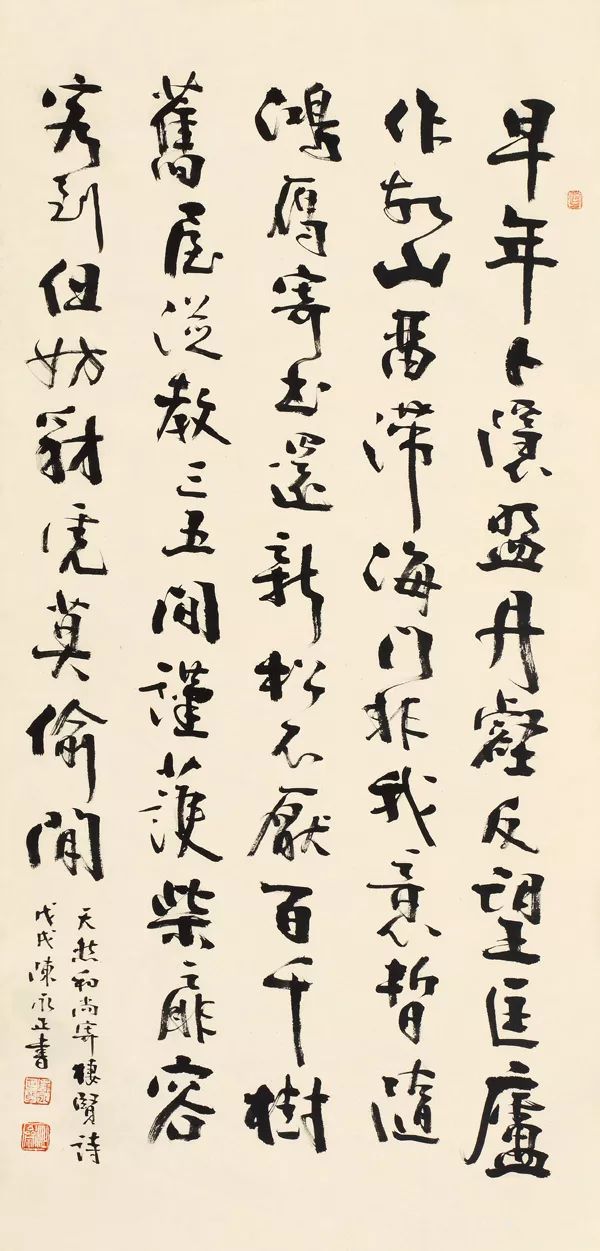 早年卜隱盟丹壑反望匡廬
作故山留滯海門非我意暫隨
鴻鴈寄書還新松不厭百千樹
舊屋從教三五間謹護柴扉容
客到但妨豺虎莫偷閒
天然和尚寄棲賢詩
戊戌陳永正書